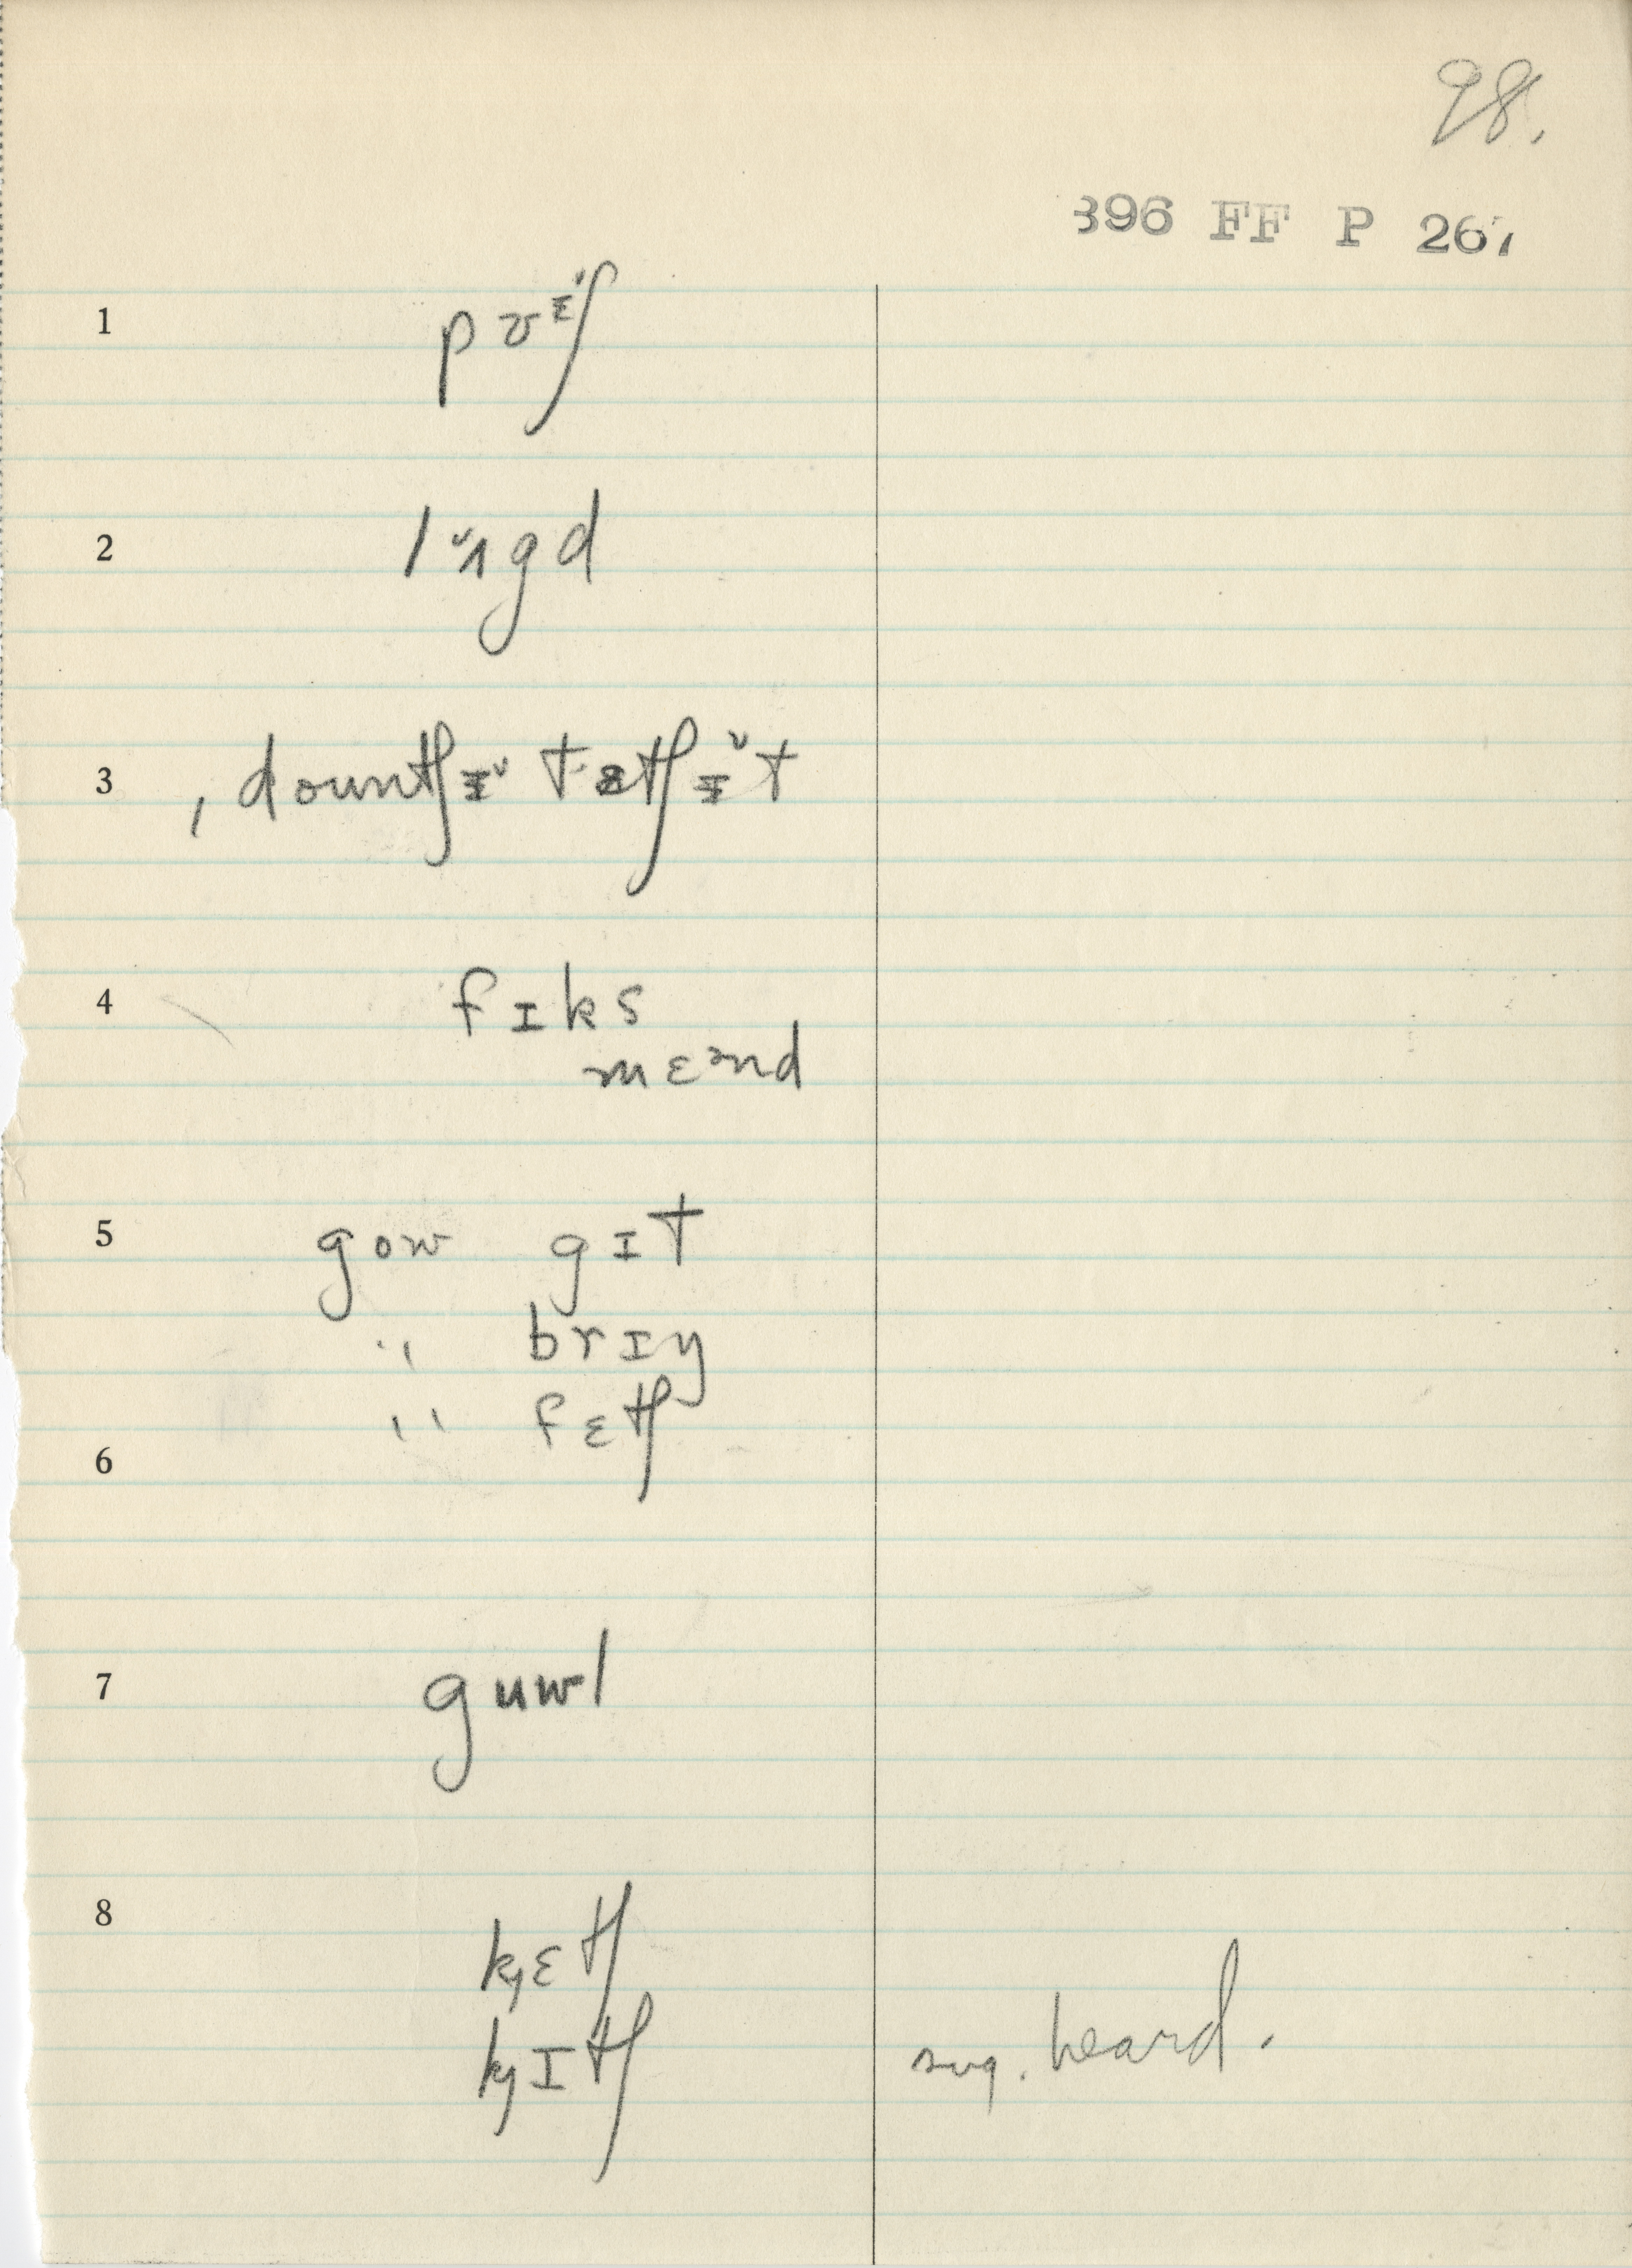 98.
396 FF P 267
1 pʊᵻ̌ʃ
2 lʌ̌gd
3 , dountʃᵻ̌ tɐtʃᵻ̌t
4 fɪks
mɛᵊnd
5 gow gɪt
" brɪŋ
" fɛtʃ
6
7 guwl
8 kȷɛtʃ
kȷɪtʃ sug. heard.